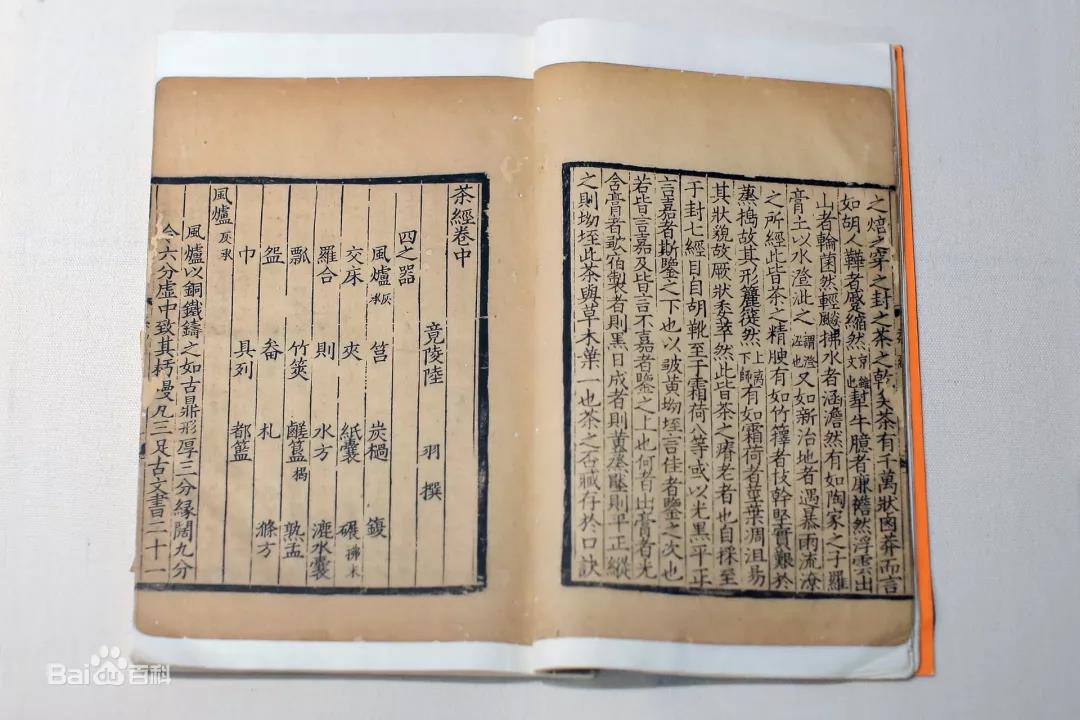 之焙之穿之封之茶之乾矣茶有千萬狀鹵莽而言
如胡人鞾者蹙縮然京錐文也犎牛臆者廉襜然浮雲出
山者輪菌然輕飈拂水者涵澹然有如陶家之子羅
膏土以水澄泚之謂澄泥也又如新治地者遇暴雨流潦
之所經此皆茶之精腴有如竹籜者枝幹堅實艱於
蒸搗故其形籭簁然上离下師有如霜荷者莖葉凋沮易
其狀貌故厥狀委萃然此皆茶之瘠老者也自採至
于封七經目自胡靴至于霜荷八等或以光黑平正
言嘉者斯鑒之下也以皺黃坳垤言佳者鑒之次也
若皆言嘉及皆言不嘉者鑒之上也何者出膏者光
含膏者皺宿製者則黑日成者則黃蒸壓則平正縱
之則坳垤此茶與草木葉一也茶之否臧存於口訣
茶經卷中
竟陵陸 羽 撰
四之器
風爐灰承 筥 炭檛 鍑
交床 夾 紙囊 碾拂末
羅合 則 水方 漉水囊
瓢 竹筴 鹺簋揭 熟盂
盌 畚 札 滌方
巾 具列 都籃
風爐灰承
風爐以銅鐵鑄之如古鼎形厚三分緣闊九分
令六分虛中致其杇墁凡三足古文書二十一
Bai百科